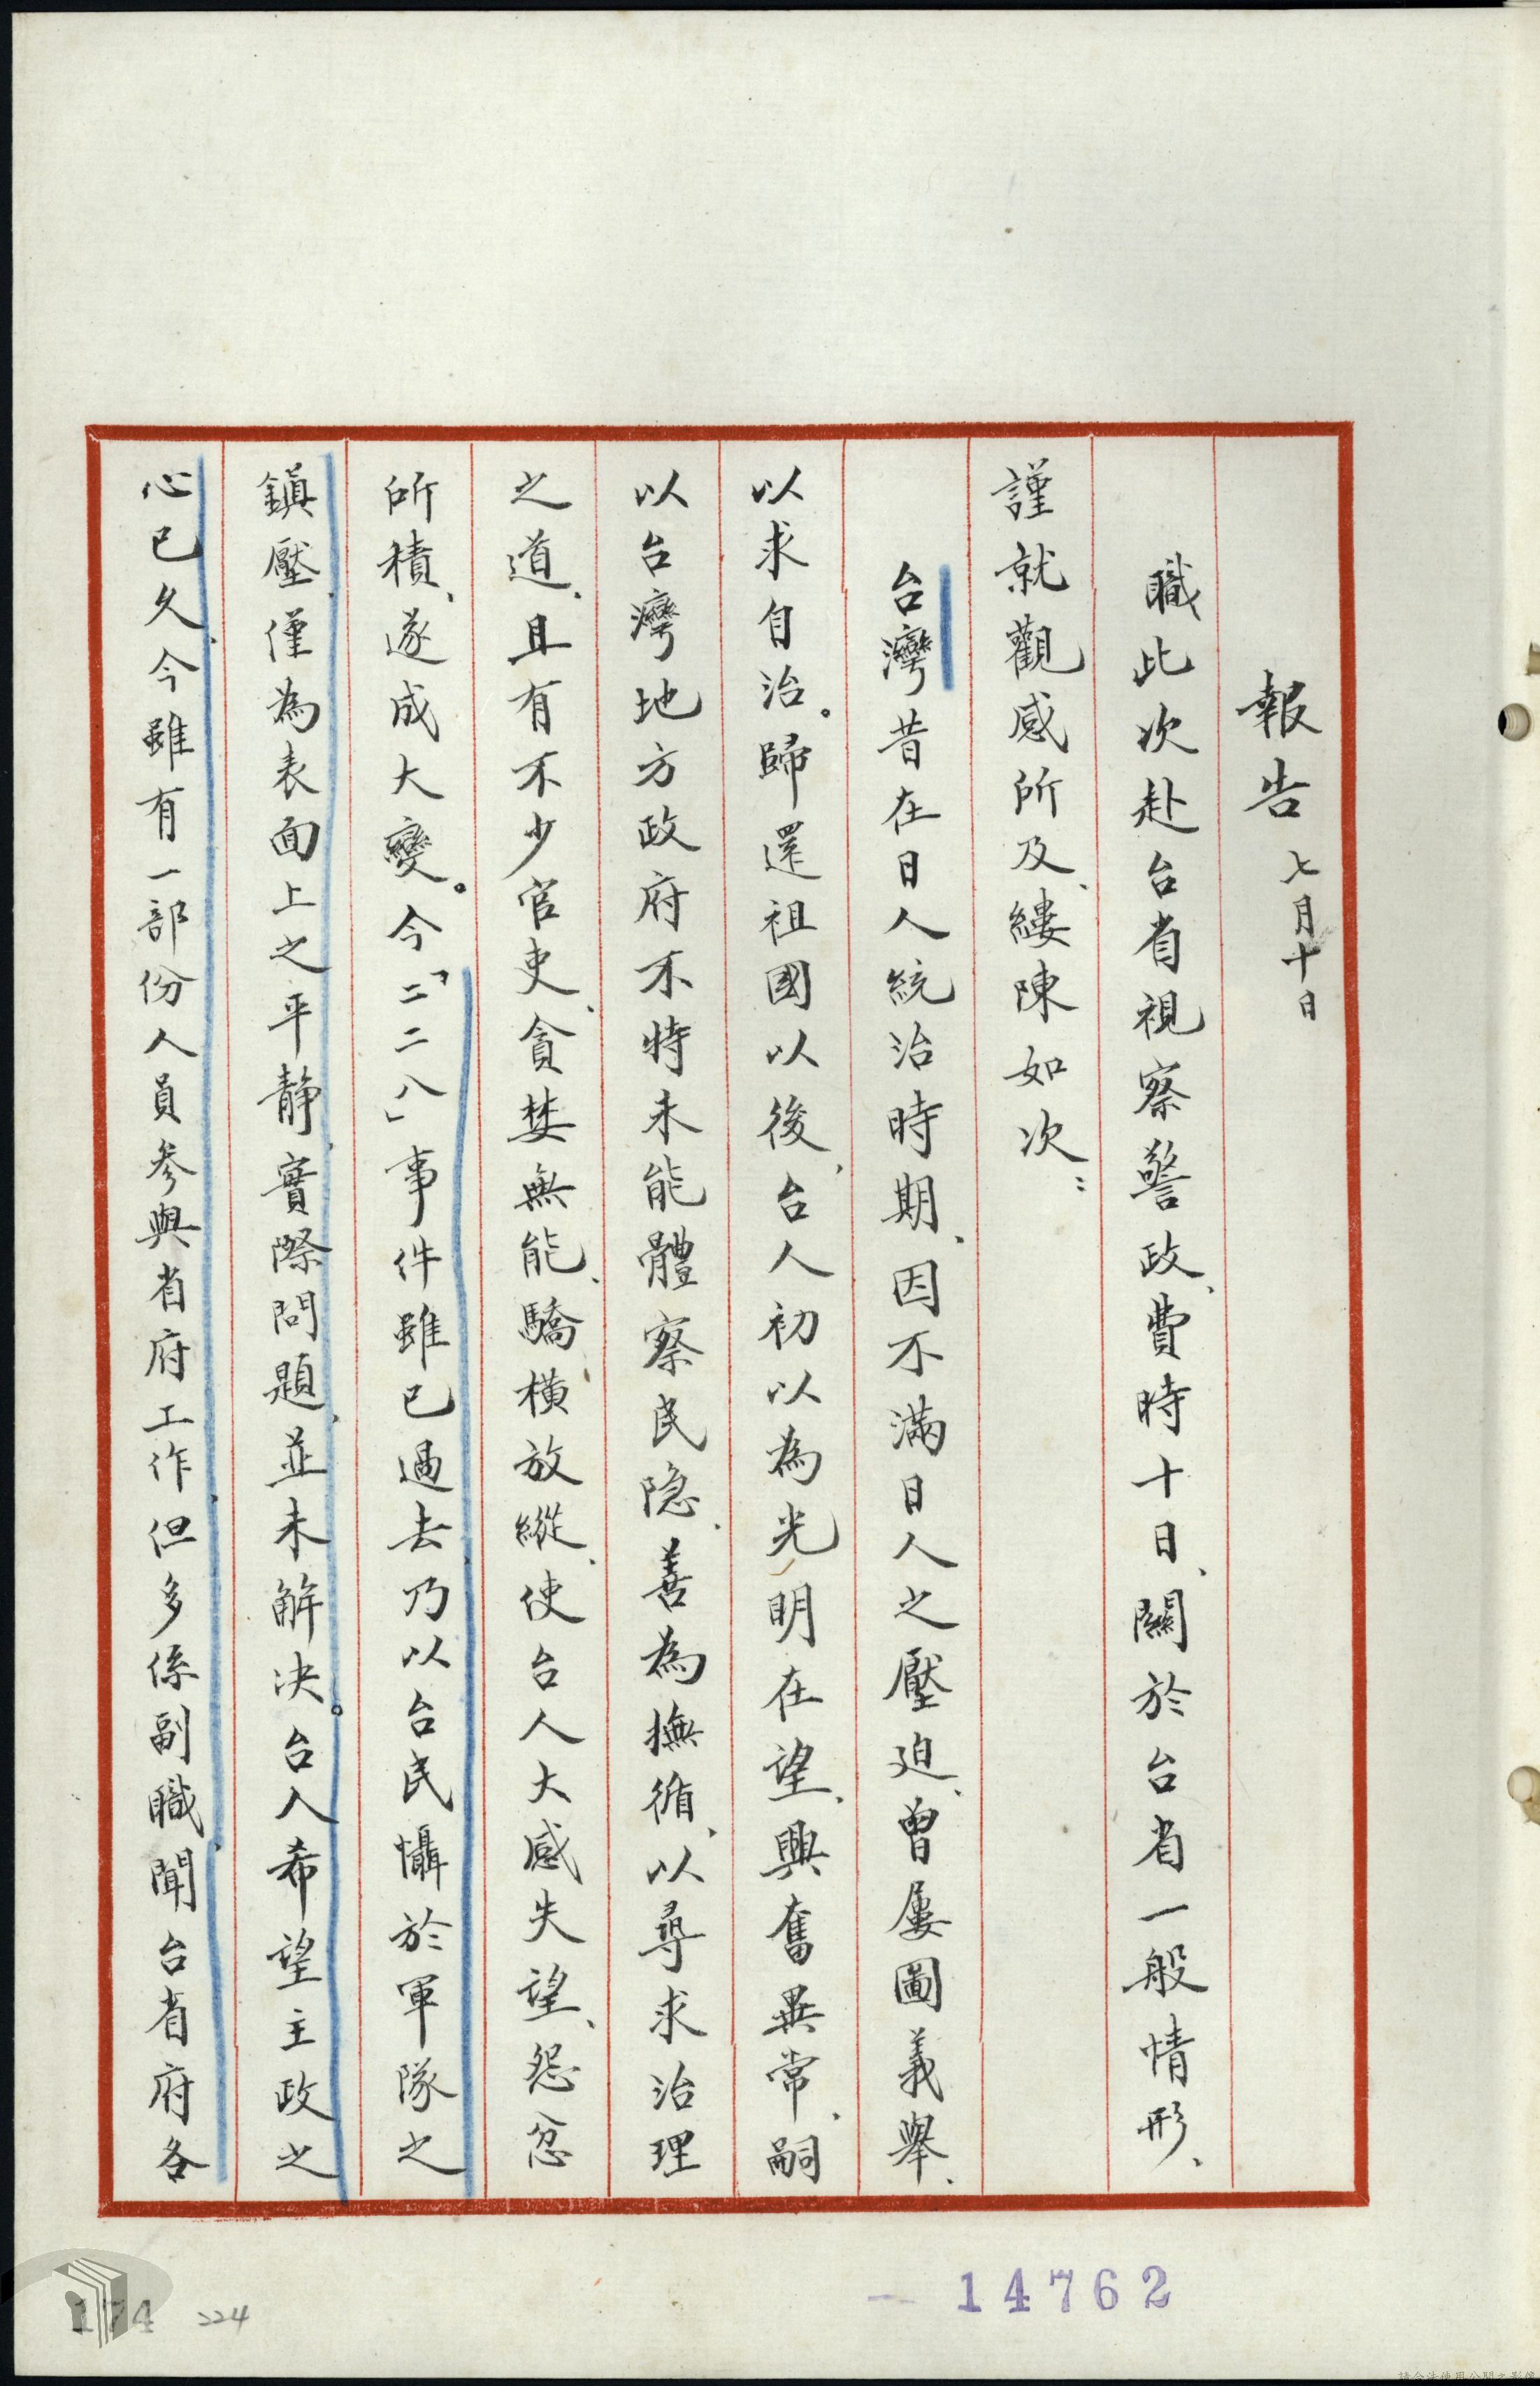 報告 七月十日
職此次赴台省視察警政、費時十日、關於台省一般情形、
謹就觀感所及、縷陳如次：
台灣昔在日人統治時期、因不滿日人之壓迫、曾屢圖義舉、
以求自治。歸還祖國以後、台人初以為光明在望、興奮異常、嗣
以台灣地方政府不特未能體察民隐、善為撫循、以尋求治理
之道、且有不少官吏、貪婪無能、驕橫放縱、使台人大感失望、怨忿
所積、遂成大變。今「二二八」事件雖已過去、乃以台民懾於軍隊之
鎮壓、僅為表面上之平靜、實際問題、並未解決。台人希望主政之
心已久、今雖有一部份人員參與省府工作、但多係副職、聞台省府各
14762
174
224